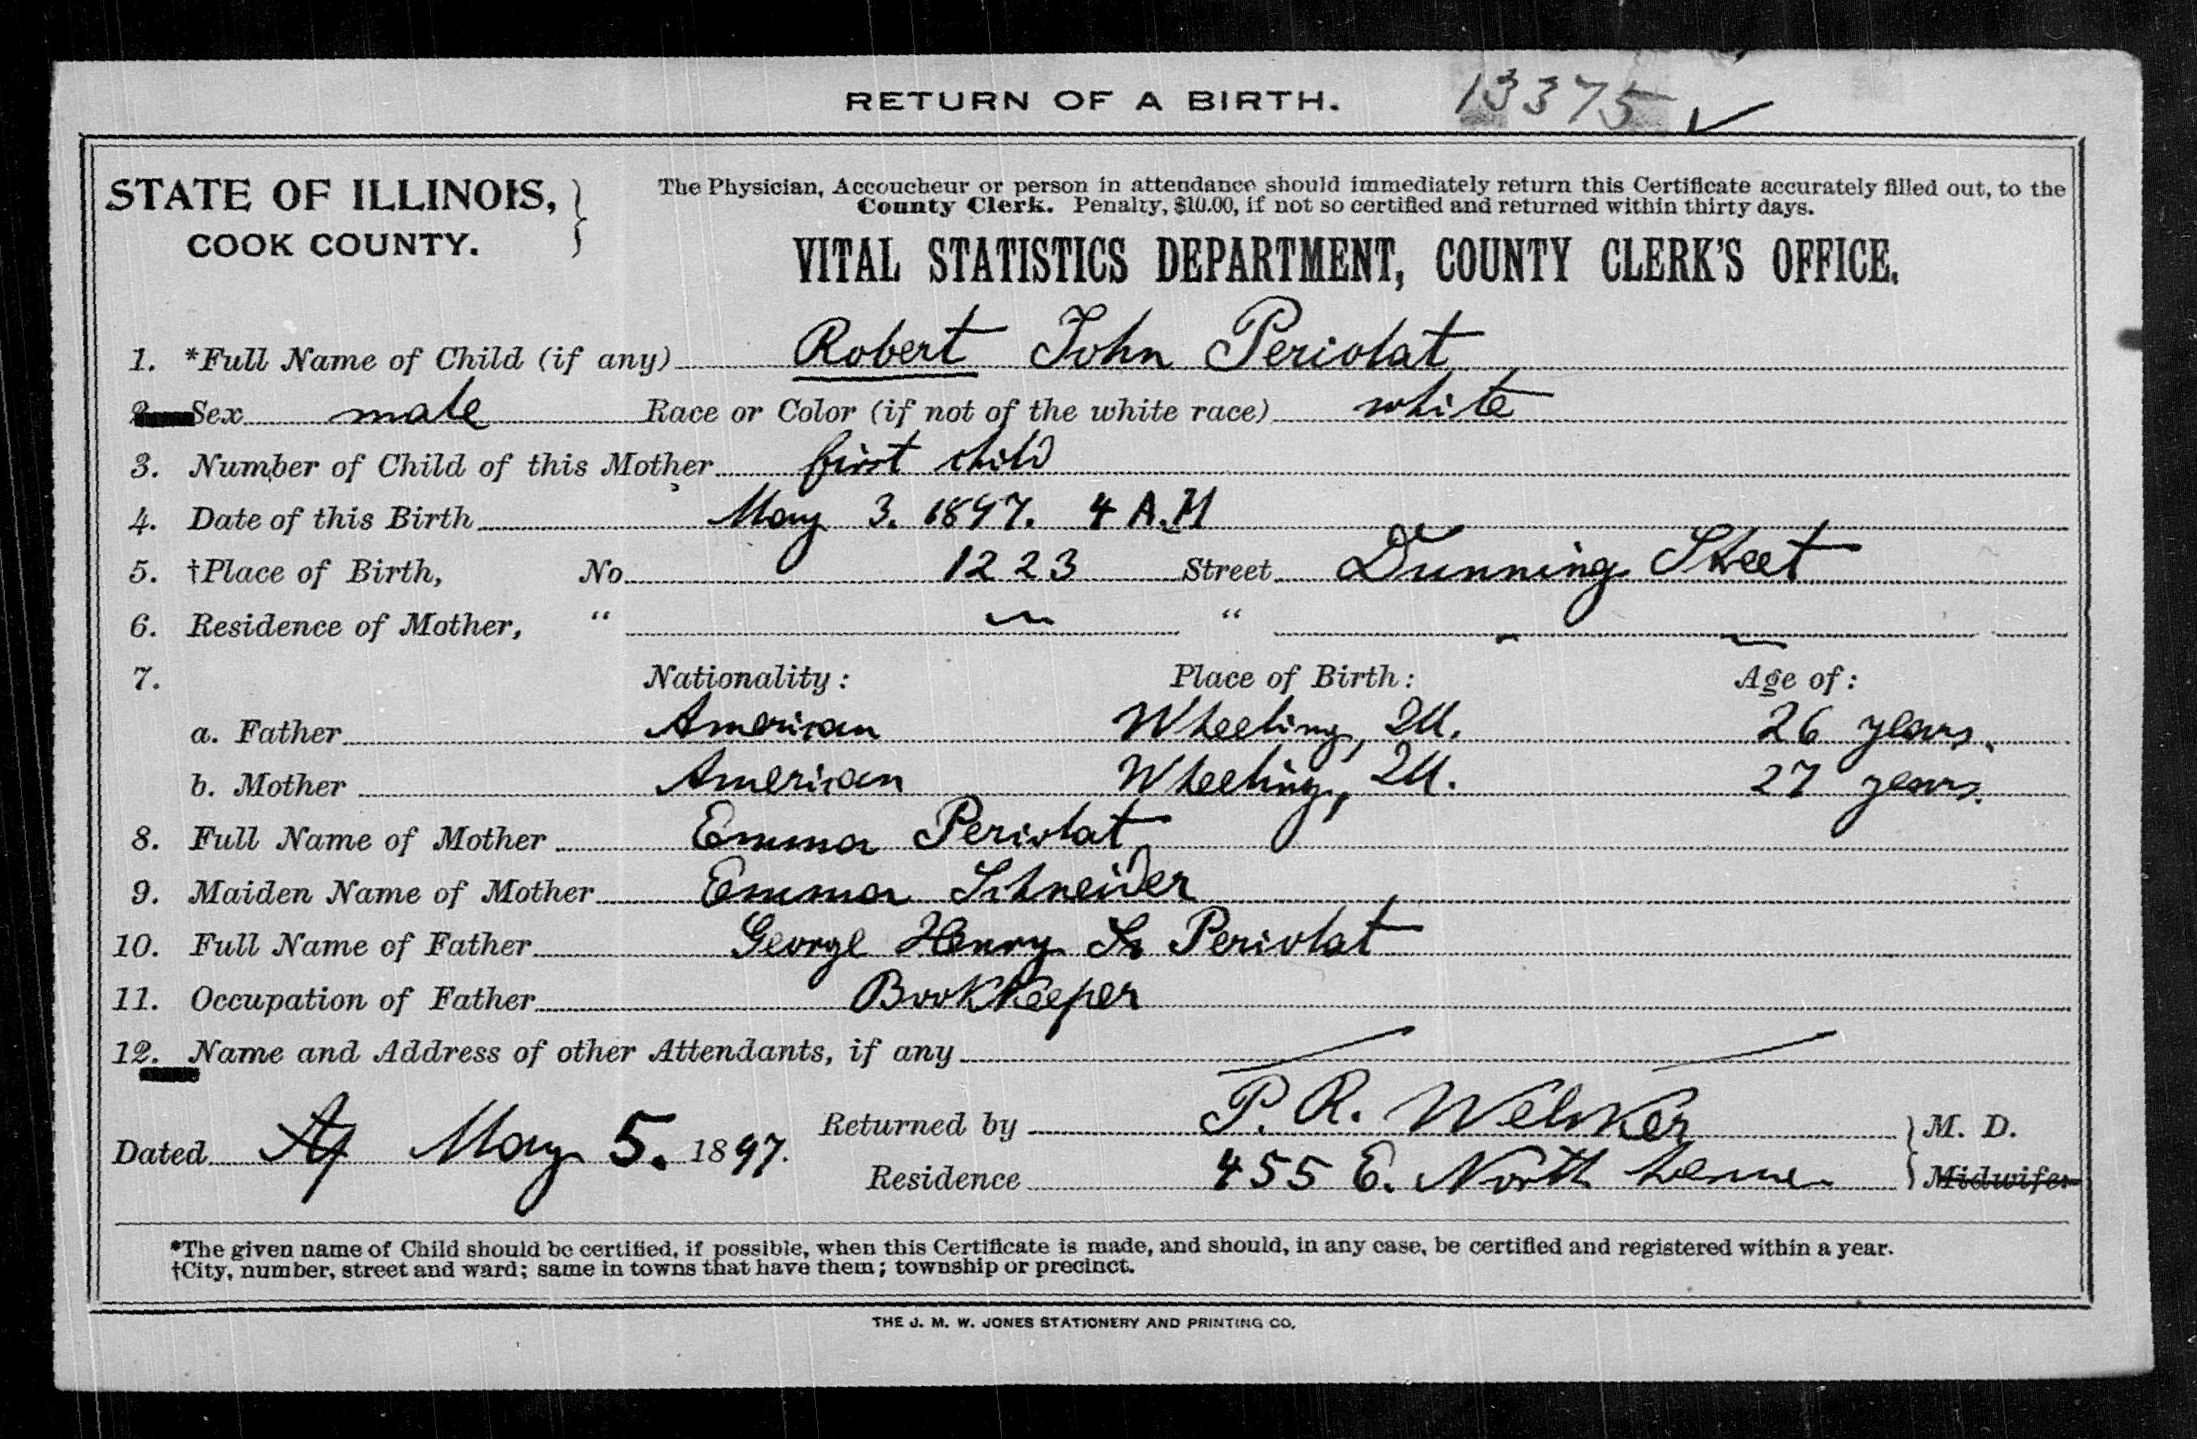 RETURN OF A BIRTH. 13375 ✓
STATE OF ILLINOIS, The Physician, Accoucheur or person in attendance should immediately return this Certificate accurately filled out, to the
County Clerk. Penalty, $10.00, if not so certified and returned within thirty days.
COOK COUNTY.
VITAL STATISTICS DEPARTMENT, COUNTY CLERK'S OFFICE.
1. *Full Name of Child (if any) Robert John Periolat
2. Sex male Race or Color (if not of the white race) white
3. Number of Child of this Mother first child
4. Date of this Birth May 3. 1897. 4 A.M
5. †Place of Birth, No 1223 Street Dunning Street
6. Residence of Mother, " " 
7. Nationality: Place of Birth: Age of:
a. Father American Wheeling, Ill. 26 years.
b. Mother American Wheeling, Ill. 27 years.
8. Full Name of Mother Emma Periolat
9. Maiden Name of Mother Emma Schneider
10. Full Name of Father George Henry Periolat
11. Occupation of Father Bookkeeper
12. Name and Address of other Attendants, if any
Returned by P. R. Welcker M. D.
Dated May 5. 1897.
Residence 455 E. North Midwife
*The given name of Child should be certified, if possible, when this Certificate is made, and should, in any case, be certified and registered within a year.
†City, number, street and ward; same in towns that have them; township or precinct.
THE J. M. W. JONES STATIONERY AND PRINTING CO.